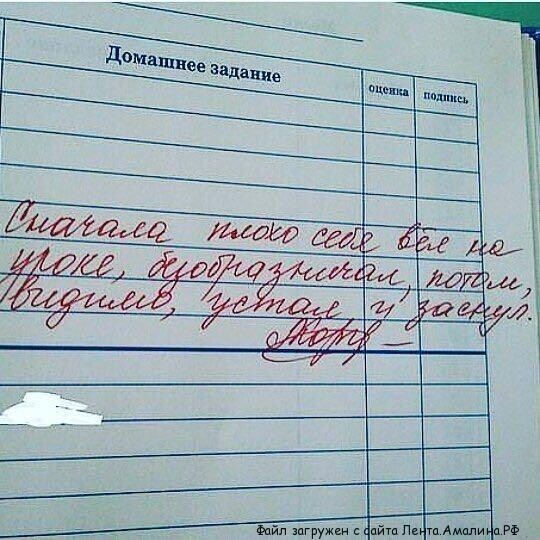 Домашнее задание
оценка
подпись
Сначала плохо себя вёл на
уроке, безобразничал, потом,
видимо, устал и заснул.
Файл загружен с сайта Лента.Амалина.РФ